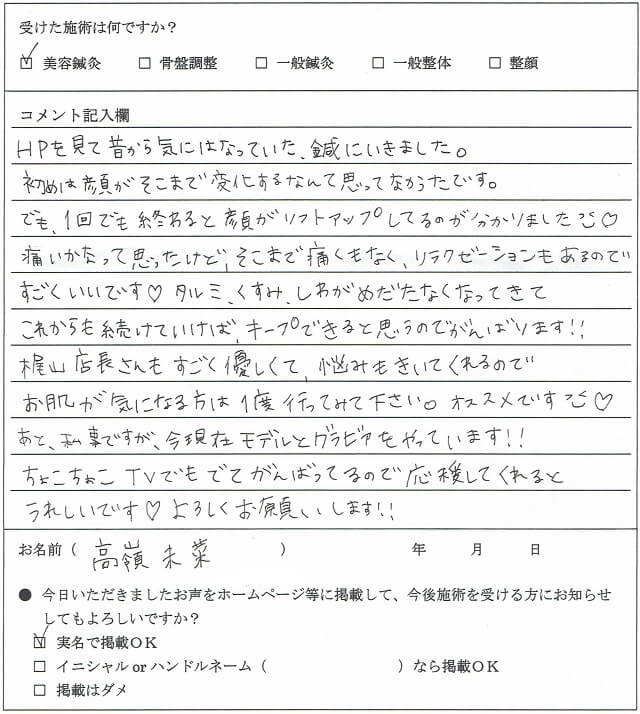 受けた施術は何ですか？
☑ 美容鍼灸 □ 骨盤調整 □ 一般鍼灸 □ 一般整体 □ 整顔
コメント記入欄
HPを見て昔から気にはなっていた、鍼にいきました。
初めは顔がそこまで変化するなんて思ってなかったです。
でも、1回でも終わると顔がリフトアップしてるのが分かりました♡
痛いかなって思ったけど、そこまで痛くもなく、リラクゼーションもあるので
すごくいいです♡ タルミ、くすみ、しわがめだたなくなってきて
これからも続けていけば、キープできると思うのでがんばります!!
梶山店長さんもすごく優しくて、悩みもきいてくれるので
お肌が気になる方は1度行ってみて下さい。オススメです♡
あと、私事ですが、今現在モデルとグラビアをやっています!!
ちょこちょこTVでもでてがんばってるので応援してくれると
うれしいです♡ よろしくお願いします!!
お名前（ 高嶺未菜 ） 年 月 日
● 今日いただきましたお声をホームページ等に掲載して、今後施術を受ける方にお知らせ
してもよろしいですか？
☑ 実名で掲載OK
□ イニシャル or ハンドルネーム（ ）なら掲載OK
□ 掲載はダメ